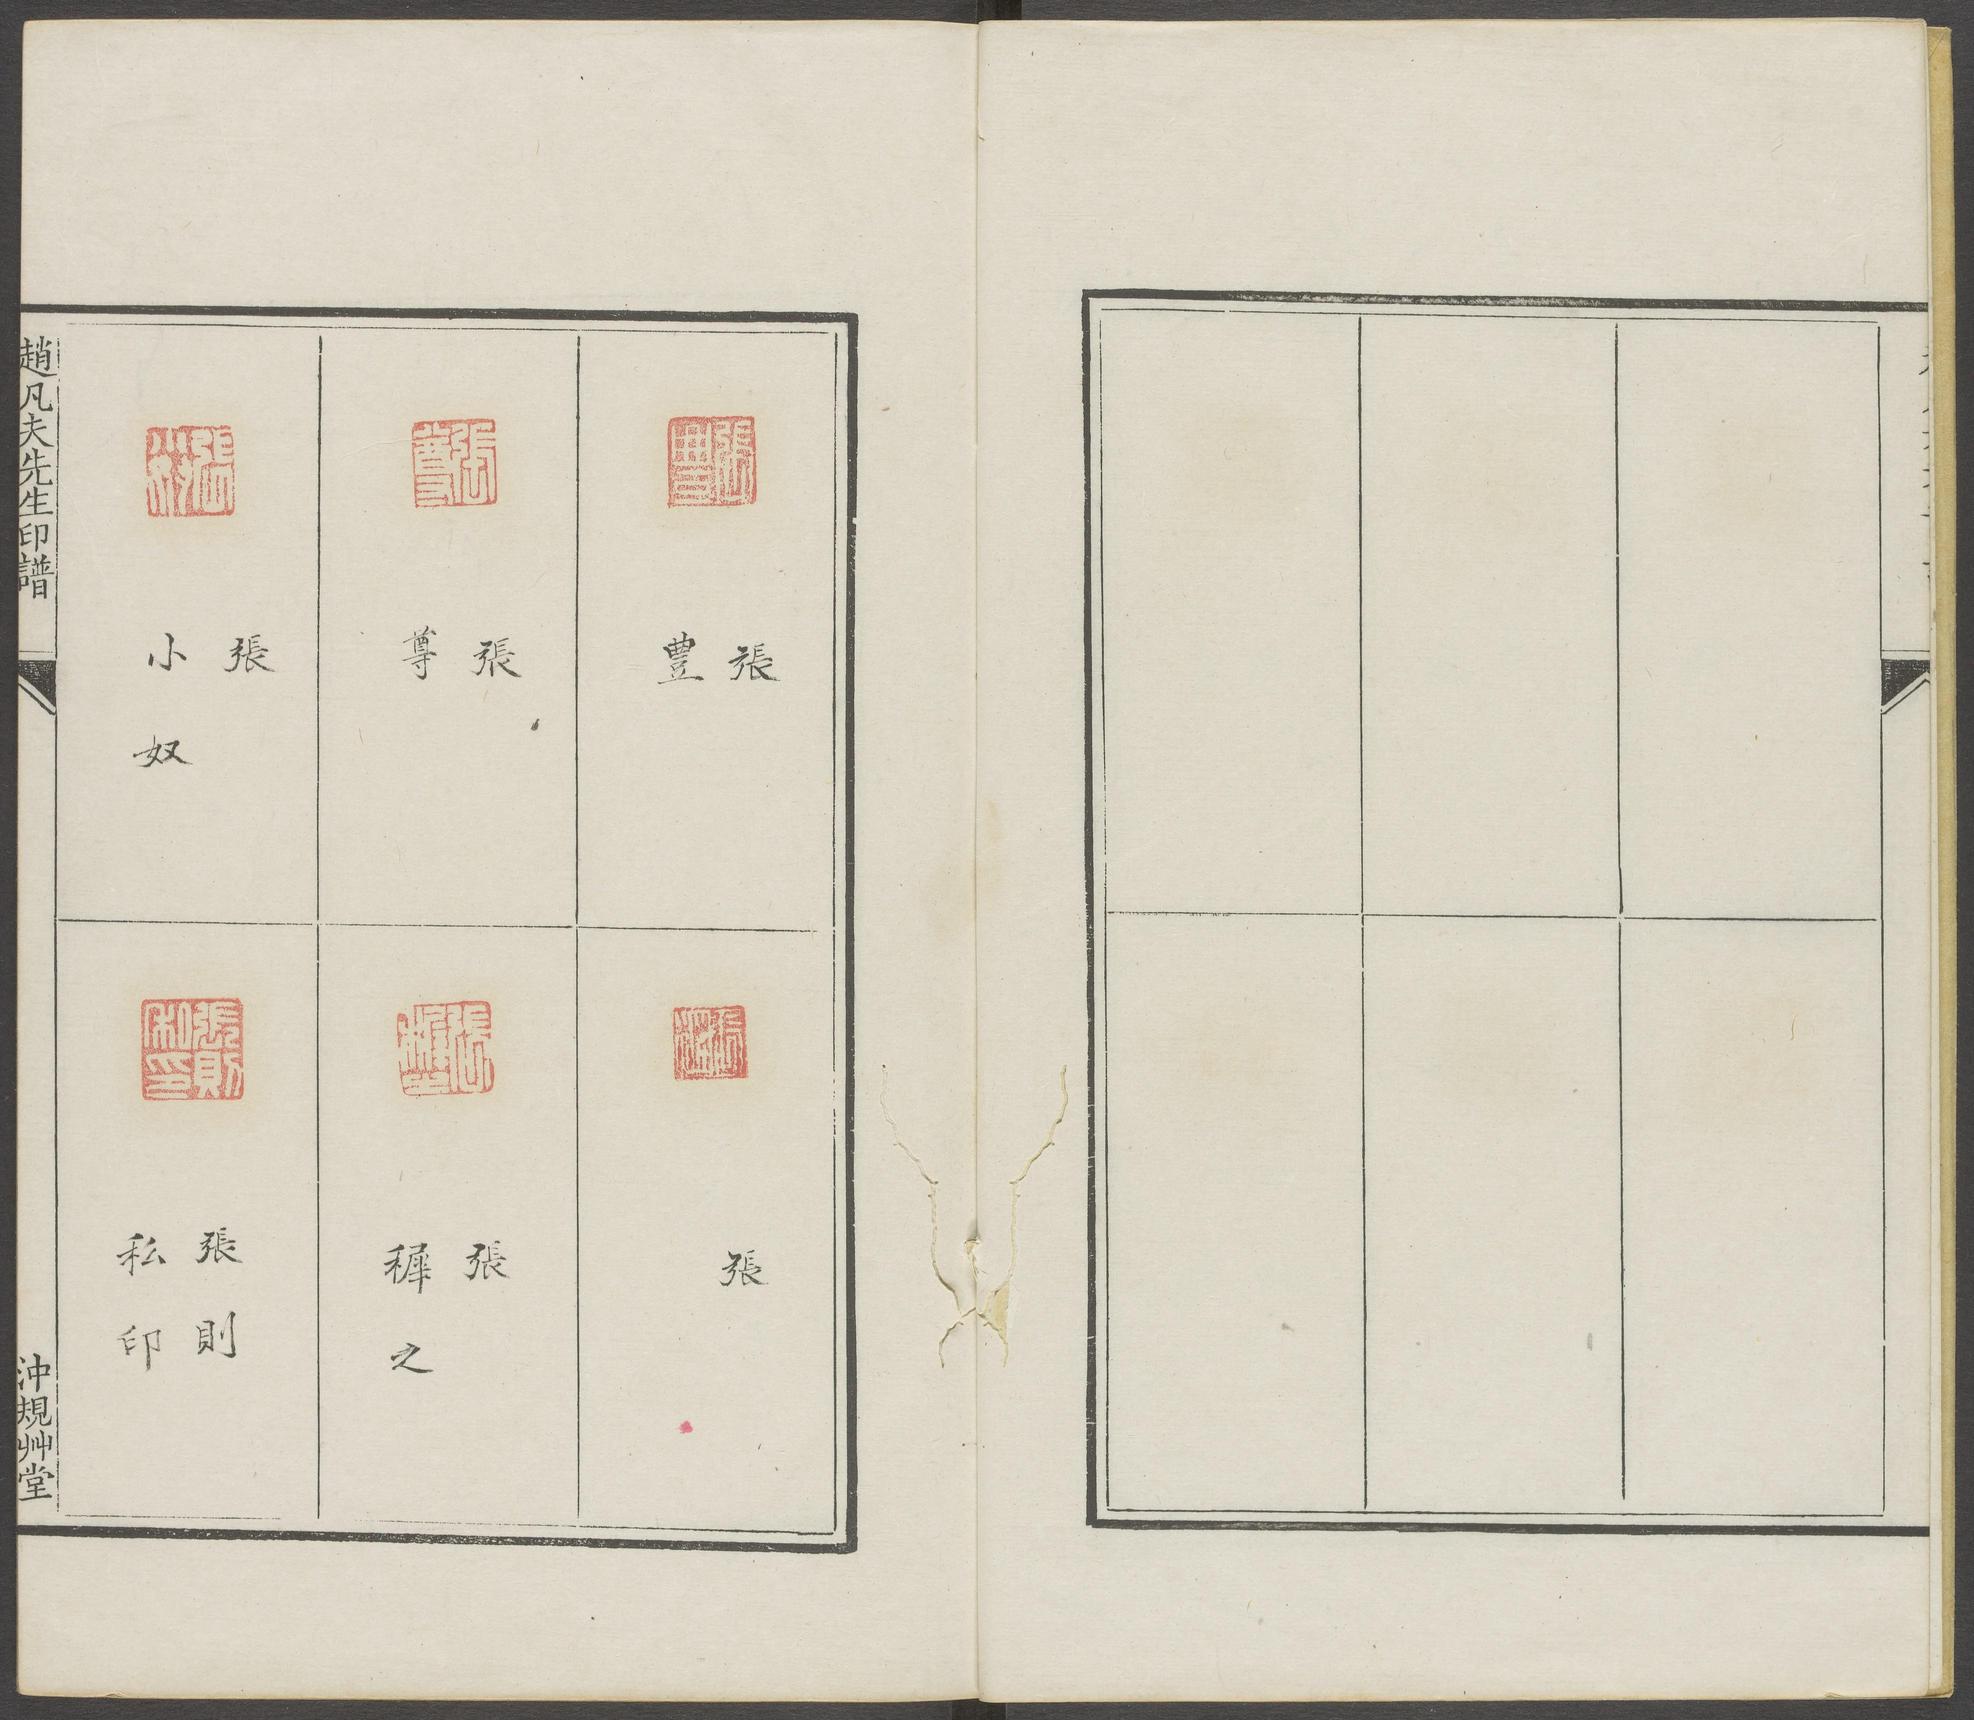 張
豊
張
尊
張
小奴
張
張
穉之
張則
私印
趙凡夫先生印譜
沖規艸堂